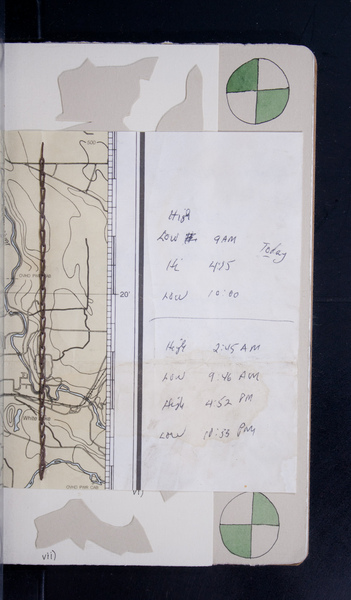 500
High
Low 9 AM
Today
Hi 4:15
20'
Low 10:00
High 2:45 AM
Low 9:46 AM
High 4:52 PM
White
Low 10:53 PM
vi)
vii)